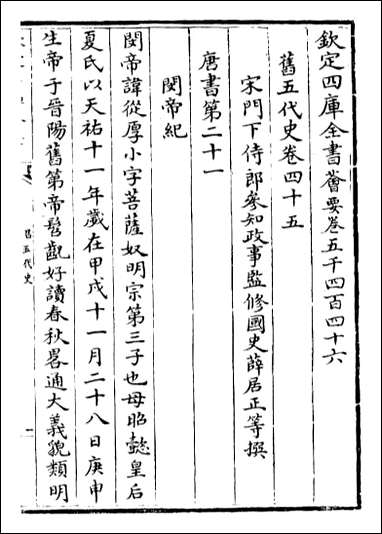 欽定四庫全書薈要卷五千四百四十六
舊五代史卷四十五
宋門下侍郎參知政事監修國史薛居正等撰
唐書第二十一
閔帝紀
閔帝諱從厚小字菩薩奴明宗第三子也母昭懿皇后
夏氏以天祐十一年歲在甲戌十一月二十八日庚申
生帝于晉陽舊第帝髫齓好讀春秋畧通大義貌類明
舊五代史
一